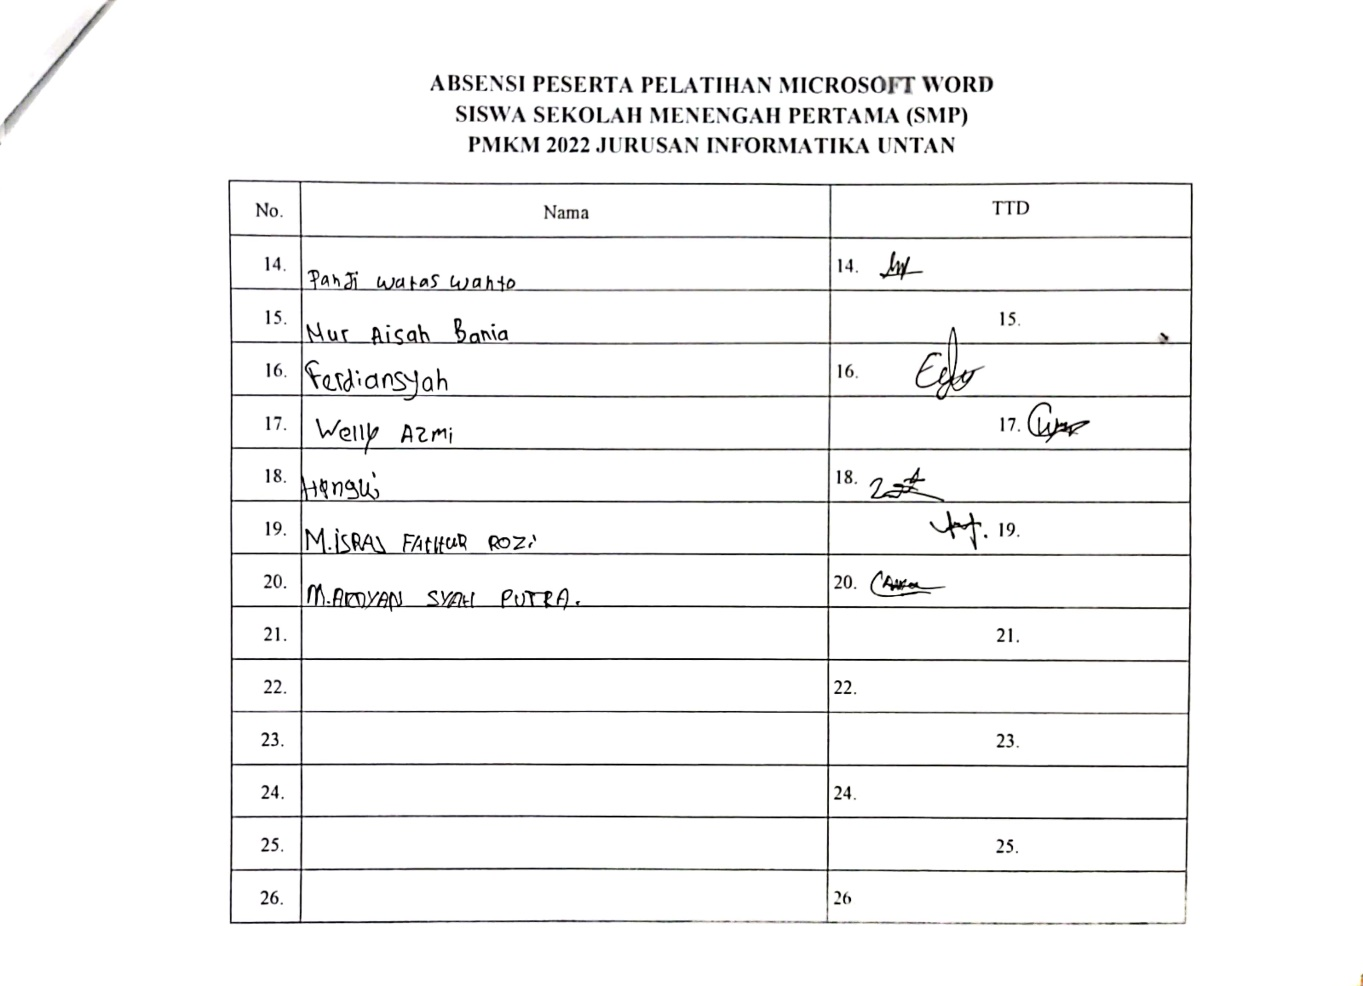 ABSENSI PESERTA PELATIHAN MICROSOFT WORD
SISWA SEKOLAH MENENGAH PERTAMA (SMP)
PMKM 2022 JURUSAN INFORMATIKA UNTAN
No. Nama TTD
14. Panji waras wanto 14.
15. Nur Aisah Bania 15.
16. Ferdiansyah 16.
17. Welly Azmi 17.
18. 18.
19. M. ISRAJ FATHUR ROZi 19.
20. M. ARDYAN SYAH PUTRA. 20.
21. 21.
22. 22.
23. 23.
24. 24.
25. 25.
26. 26